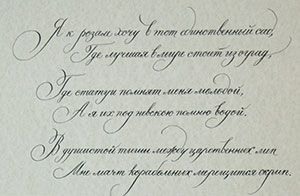 Я к розам хочу в тот единственный сад,
Где лучшая в мире стоит из оград,
Где статуи помнят меня молодой,
А я их под невскою помню водой.
В душистой тиши между царственных лип
Мне мачт корабельных мерещится скрип.